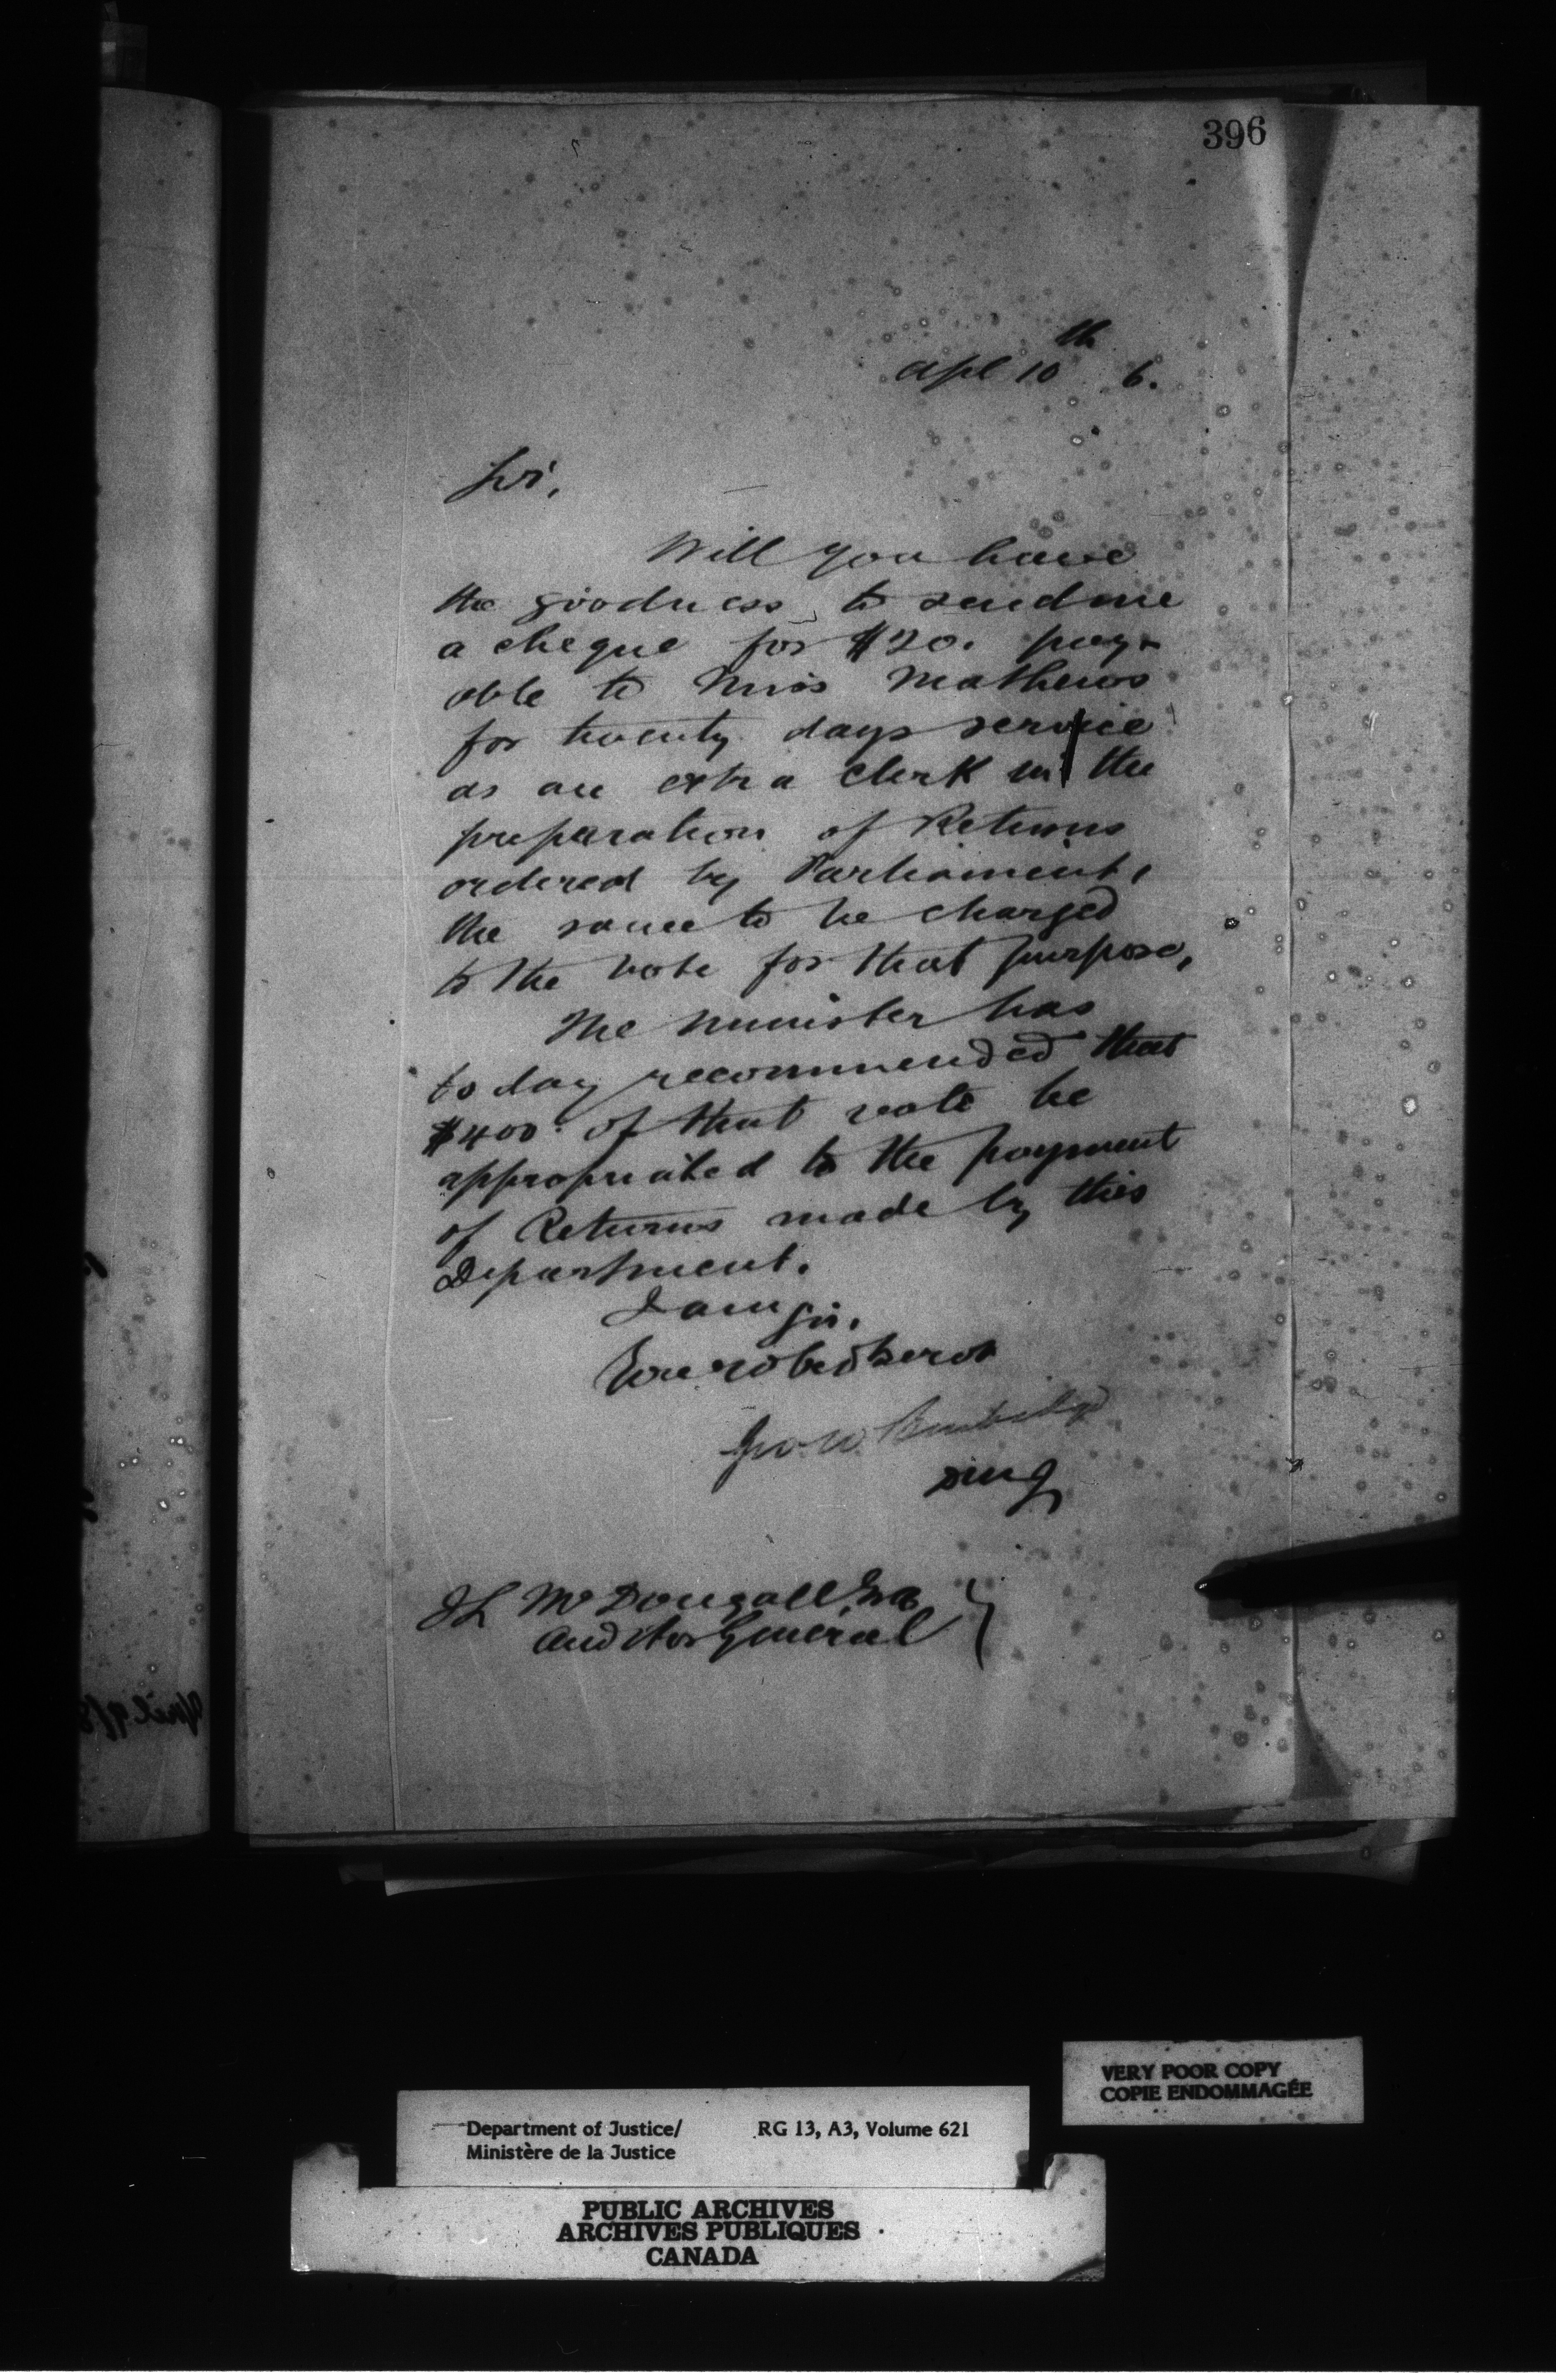 396
Apl 10th 6.
Sir,
Will you have
the goodness to send me
a cheque for $20. pay-
able to Miss Mathews
for twenty days service
as an extra Clerk in the
preparation of Returns
ordered by Parliament,
the same to be charged
to the vote for that purpose,
The Minister has
to day recommended that
$400. of that vote be
appropriated to the payment
of Returns made by this
Department.
I am Sir,
Your obed Servt
Geo. W. Burbidge
DMJ
J L McDougall Esq
Auditor General
April 9/8
VERY POOR COPY
COPIE ENDOMMAGÉE
Department of Justice/ RG 13, A3, Volume 621
Ministère de la Justice
PUBLIC ARCHIVES
ARCHIVES PUBLIQUES
CANADA